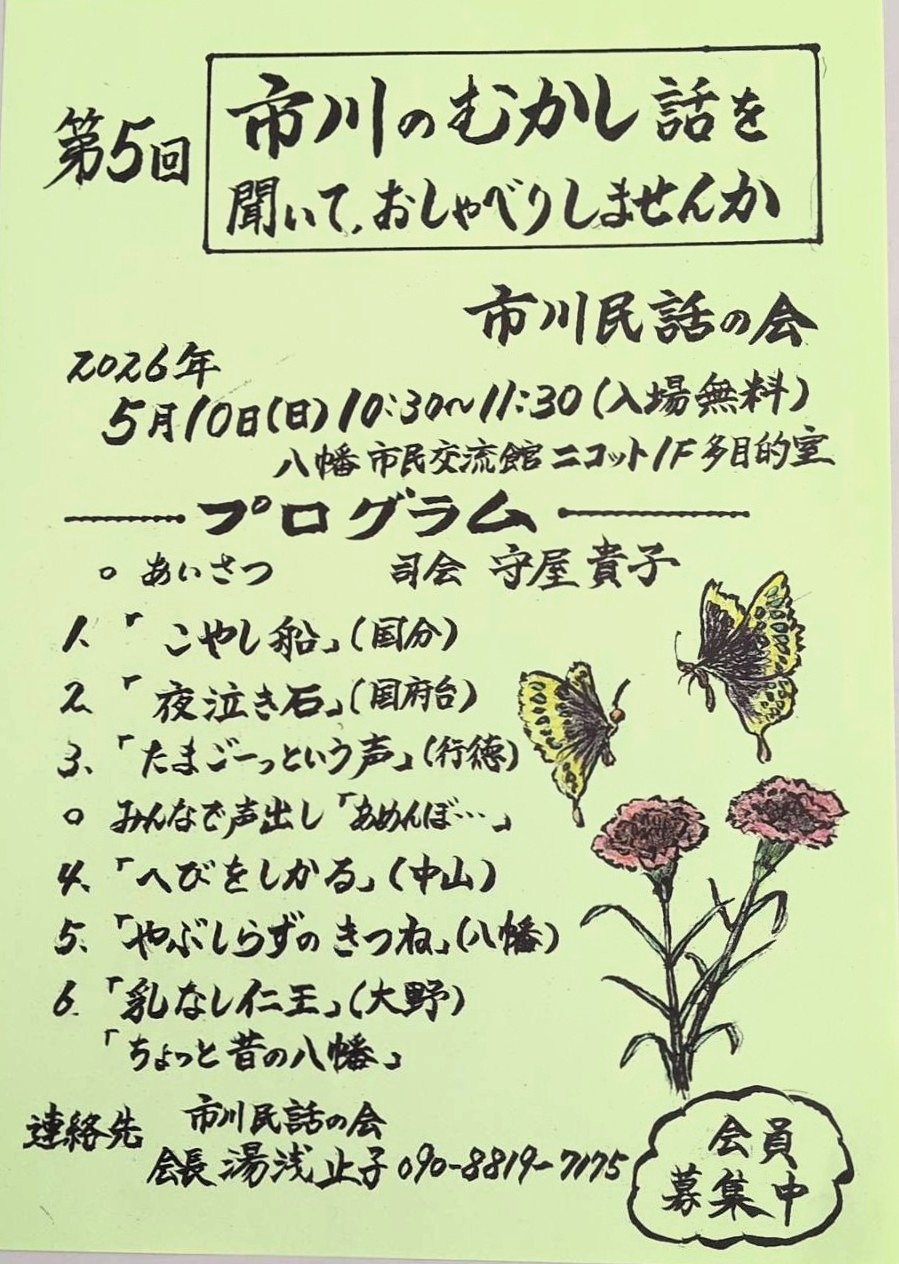 第5回
市川のむかし話を
聞いて、おしゃべりしませんか
市川民話の会
2026年
5月10日(日)10:30~11:30(入場無料)
八幡市民交流館ニコット1F多目的室
プログラム
○ あいさつ 司会 守屋貴子
1.「こやし船」(国分)
2.「夜泣き石」(国府台)
3.「たまごーっという声」(行徳)
○ みんなで声出し「あめんぼ…」
4.「へびをしかる」(中山)
5.「やぶしらずのきつね」(八幡)
6.「乳なし仁王」(大野)
「ちょっと昔の八幡」
連絡先 市川民話の会
会長 湯浅止子 090-8819-7175
会員
募集中